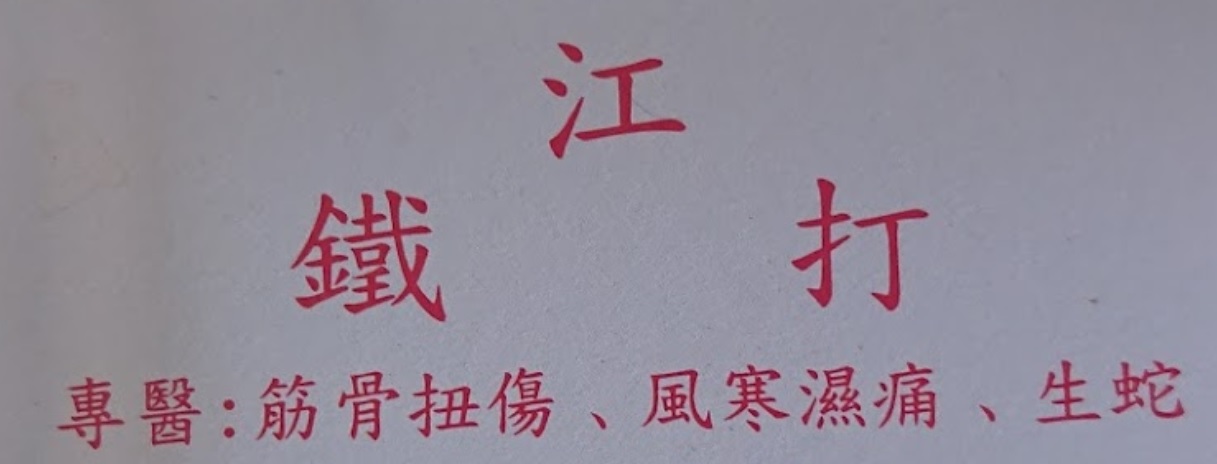 江
鐵 打
專醫:筋骨扭傷、風寒濕痛、生蛇